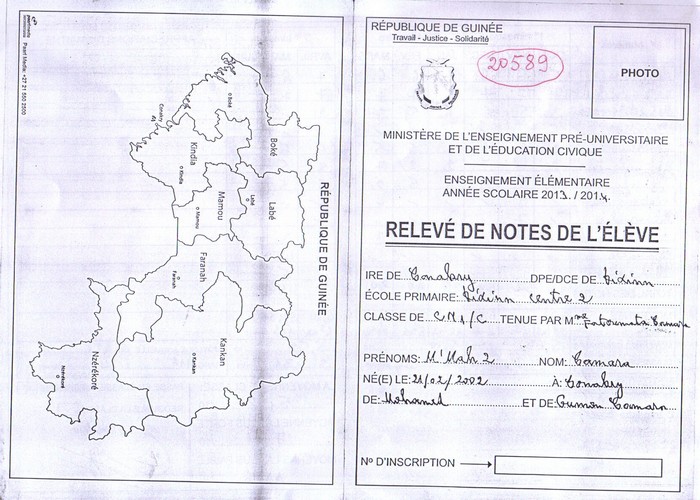 RÉPUBLIQUE DE GUINÉE
Boké
Boké
Conakry
Kindia
Kindia
Labé
Labé
Mamou
Mamou
Faranah
Faranah
Kankan
Kankan
Nzérékoré
Nzérékoré
RÉPUBLIQUE DE GUINÉE
Travail - Justice - Solidarité
20589
PHOTO
MINISTÈRE DE L'ENSEIGNEMENT PRÉ-UNIVERSITAIRE
ET DE L'ÉDUCATION CIVIQUE
ENSEIGNEMENT ÉLÉMENTAIRE
ANNÉE SCOLAIRE 2013. / 2014.
RELEVÉ DE NOTES DE L'ÉLÈVE
IRE DE Conakry DPE/DCE DE Dixinn
ÉCOLE PRIMAIRE: Dixinn centre 2
CLASSE DE CM1/C TENUE PAR Mme Fatoumata Camara
PRÉNOMS: M'Mah 2 NOM: Camara
NÉ(E) LE: 21/02/2002 À: Conakry
DE: Mohamed ET DE: Camara
N° D'INSCRIPTION